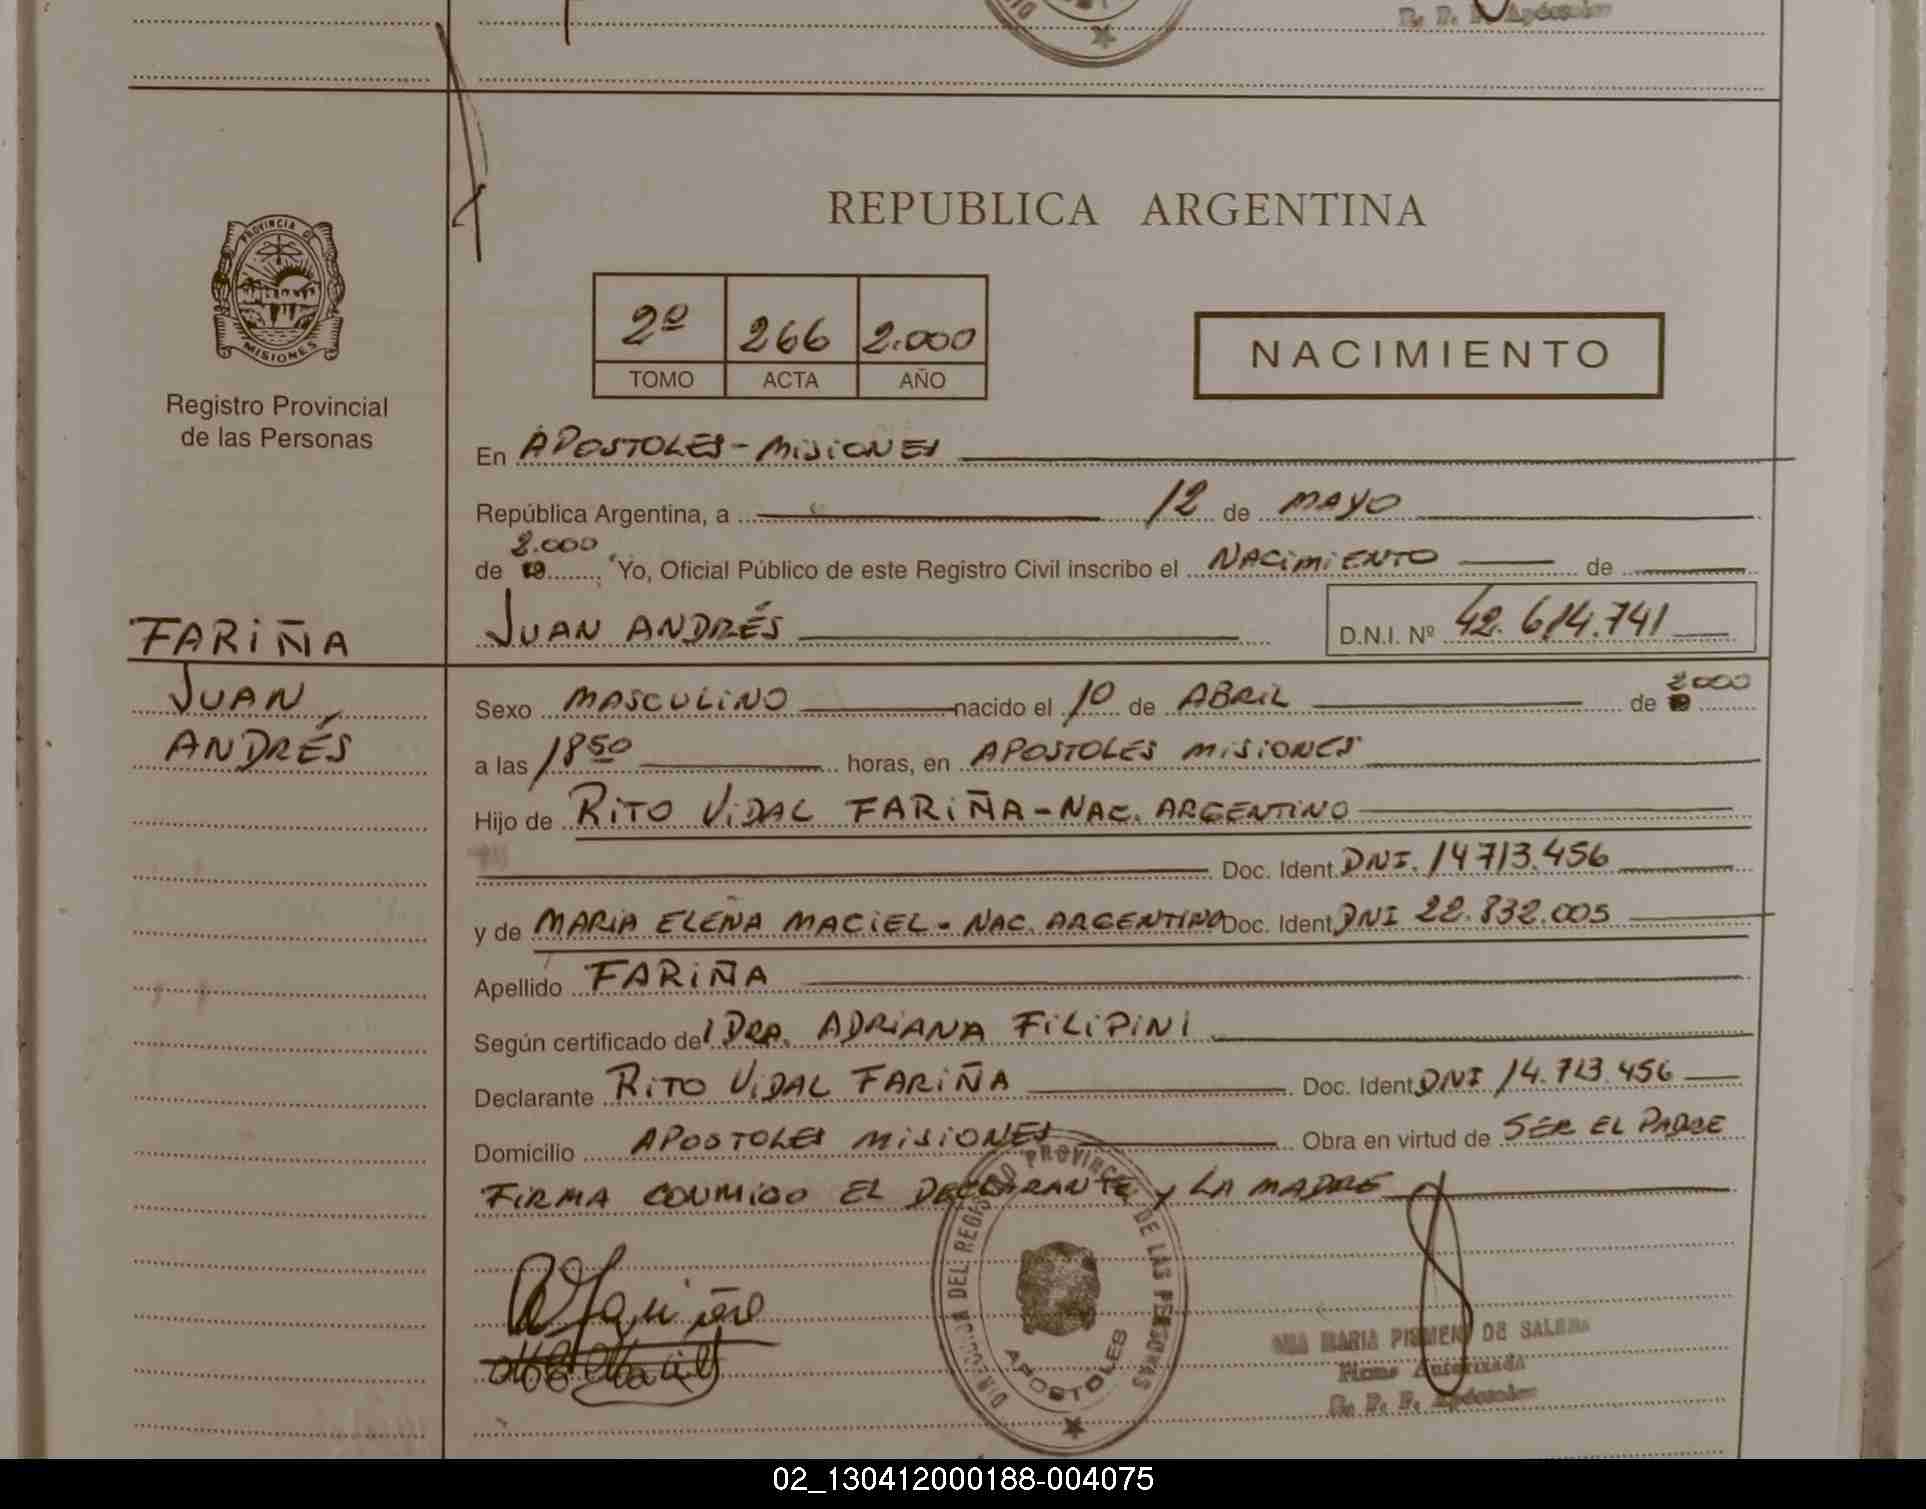 R. P. P. Apóstoles
PROVINCIA DE
MISIONES
Registro Provincial
de las Personas
FARIÑA
JUAN
ANDRÉS
REPUBLICA ARGENTINA
2º 266 2.000
TOMO ACTA AÑO
NACIMIENTO
En APOSTOLES - MISIONES
República Argentina, a 12 de MAYO
2.000
de 19 Yo, Oficial Público de este Registro Civil inscribo el NACIMIENTO de
JUAN ANDRÉS D.N.I. Nº 42.614.741
Sexo MASCULINO nacido el 10 de ABRIL de 2000
a las 18 50 horas, en APOSTOLES MISIONES
Hijo de RITO VIDAL FARIÑA - NAC. ARGENTINO
Doc. Ident. DNI. 14 713.456
y de MARIA ELENA MACIEL - NAC. ARGENTINO Doc. Ident. DNI 22.832.005
Apellido FARIÑA
Según certificado de 1 DRA. ADRIANA FILIPINI
Declarante RITO VIDAL FARIÑA Doc. Ident. DNI 14.713.456
Domicilio APOSTOLES MISIONES Obra en virtud de SER EL PADRE
FIRMA CONMIGO EL DECLARANTE y LA MADRE
DIRECCION DEL REGISTRO PROVINCIAL DE LAS PERSONAS
APOSTOLES
MARIA DE
Firma Autorizada
R. P. P. Apóstoles
02_130412000188-004075